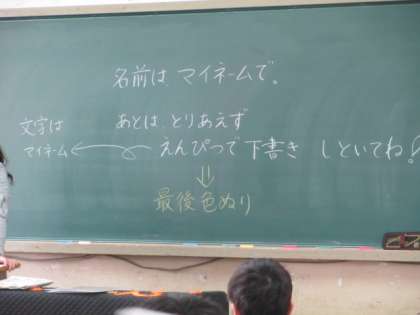 名前は、マイネームで。
文字は あとは、とりあえず
マイネーム えんぴつで下書き しといてね!
最後色ぬり